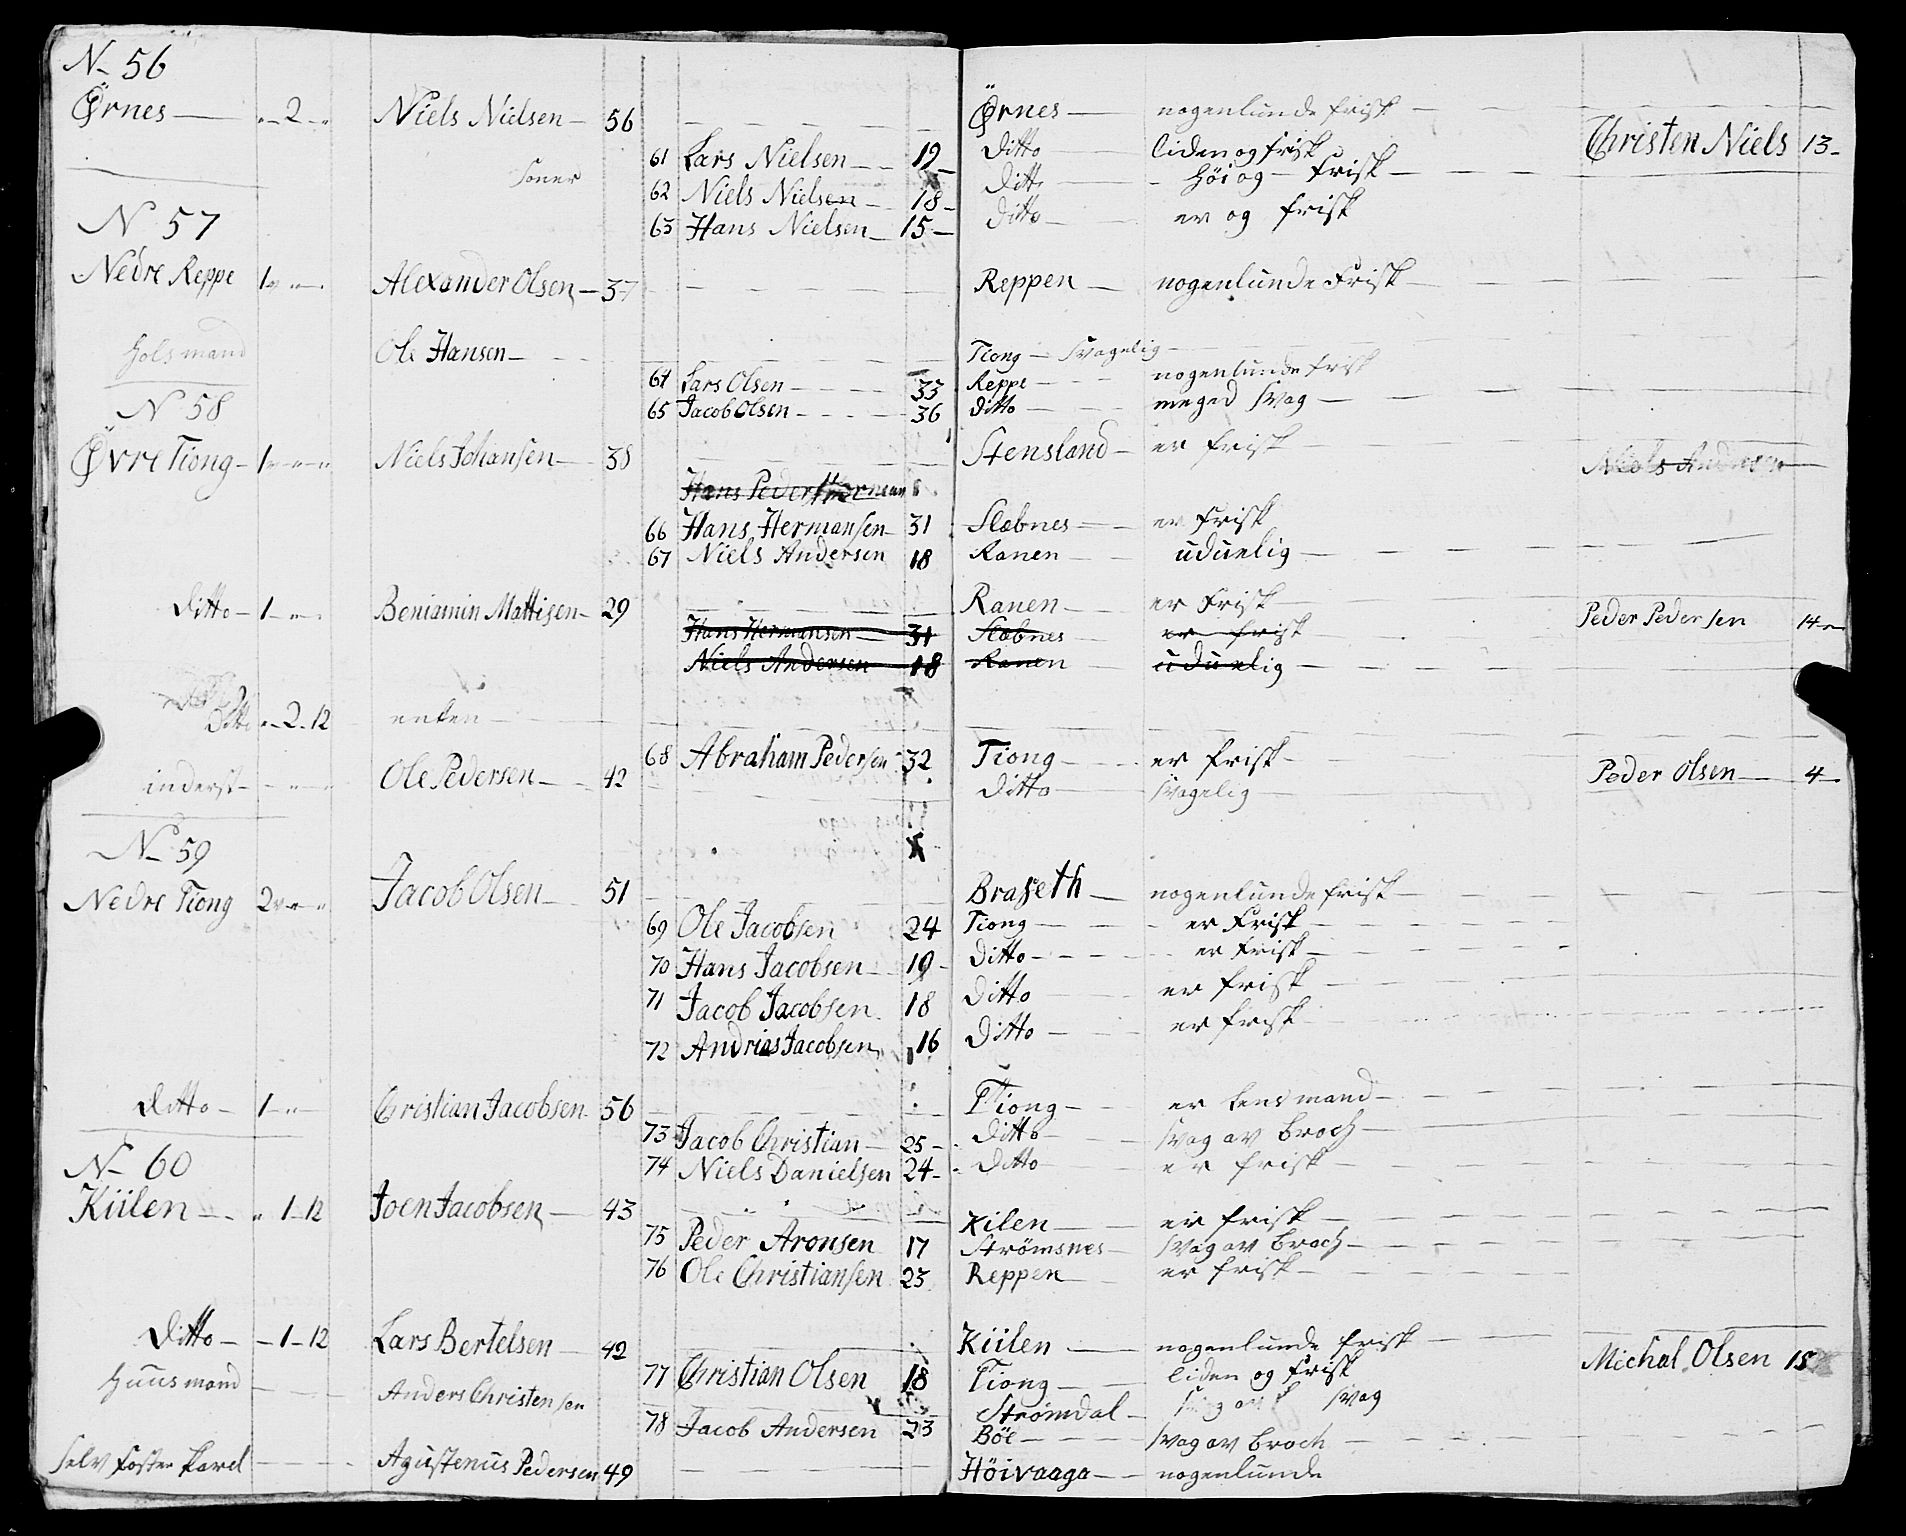 N 56
Örnes — " 2 " Niels Nielsen — 56 Örnes — nogenlunde frisk
61 Lars Nielsen — 19 Ditto liden og frisk Christen Niels 13
Soner 62 Niels Nielsen — 18 Ditto Höi og frisk
63 Hans Nielsen — 15 Ditto er og frisk
N 57
Nedre Reppe 1 " " Alexander Olsen — 37 Reppen nogenlunde Frisk
Ole Hansen Tiong Svagelig
64 Lars Olsen 33 Reppe nogenlunde frisk
65 Jacob Olsen 36 Ditto meged svag
N 58
Övre Tiong 1 " " Niels Johansen 38 Stensland er frisk Niels Andersen
Hans Peder Herman 8
66 Hans Hermansen 31 Slæbnes er frisk
67 Niels Andersen 18 Ranen uduelig
Ditto 1 " Beniamin Mattisen 29 Ranen er Frisk Peder Pedersen 14
Hans Hermansen 31 Slæbnes er frisk
Niels Andersen 18 Ranen uduelig
Ditto " 2 12 enken
68 Abraham Pedersen 32 Tiong er frisk
inderst Ole Pedersen 42 Ditto svagelig Peder Olsen 4
N 59
Nedre Tiong 2 " " Jacob Olsen 51 Braseth nogenlunde frisk
69 Ole Jacobsen 24 Tiong er Frisk
70 Hans Jacobsen 19 Ditto er frisk
71 Jacob Jacobsen 18 Ditto er frisk
72 Andrias Jacobsen 16 Ditto er frisk
Ditto 1 " Christian Jacobsen 56 Tiong er Lensmand
73 Jacob Christian 25 Ditto svag av broch
74 Niels Danielsen 24 Ditto er frisk
N 60
Kiilen " 1 12 Joen Jacobsen 43 Kilen er frisk
75 Peder Aronsen 17 Strømsnes svag av broch
76 Ole Christiansen 23 Reppen er frisk
Ditto 1 12 Lars Bertelsen 42 Kiilen nogenlunde frisk
77 Christian Olsen 18 Tiong liden og frisk Michal Olsen 15
Huusmand Anders Christensen Strømdal svag
78 Jacob Andersen 23 Böe svag av broch
Selv foster Agustenus Pedersen 49 Höivaaga nogenlunde